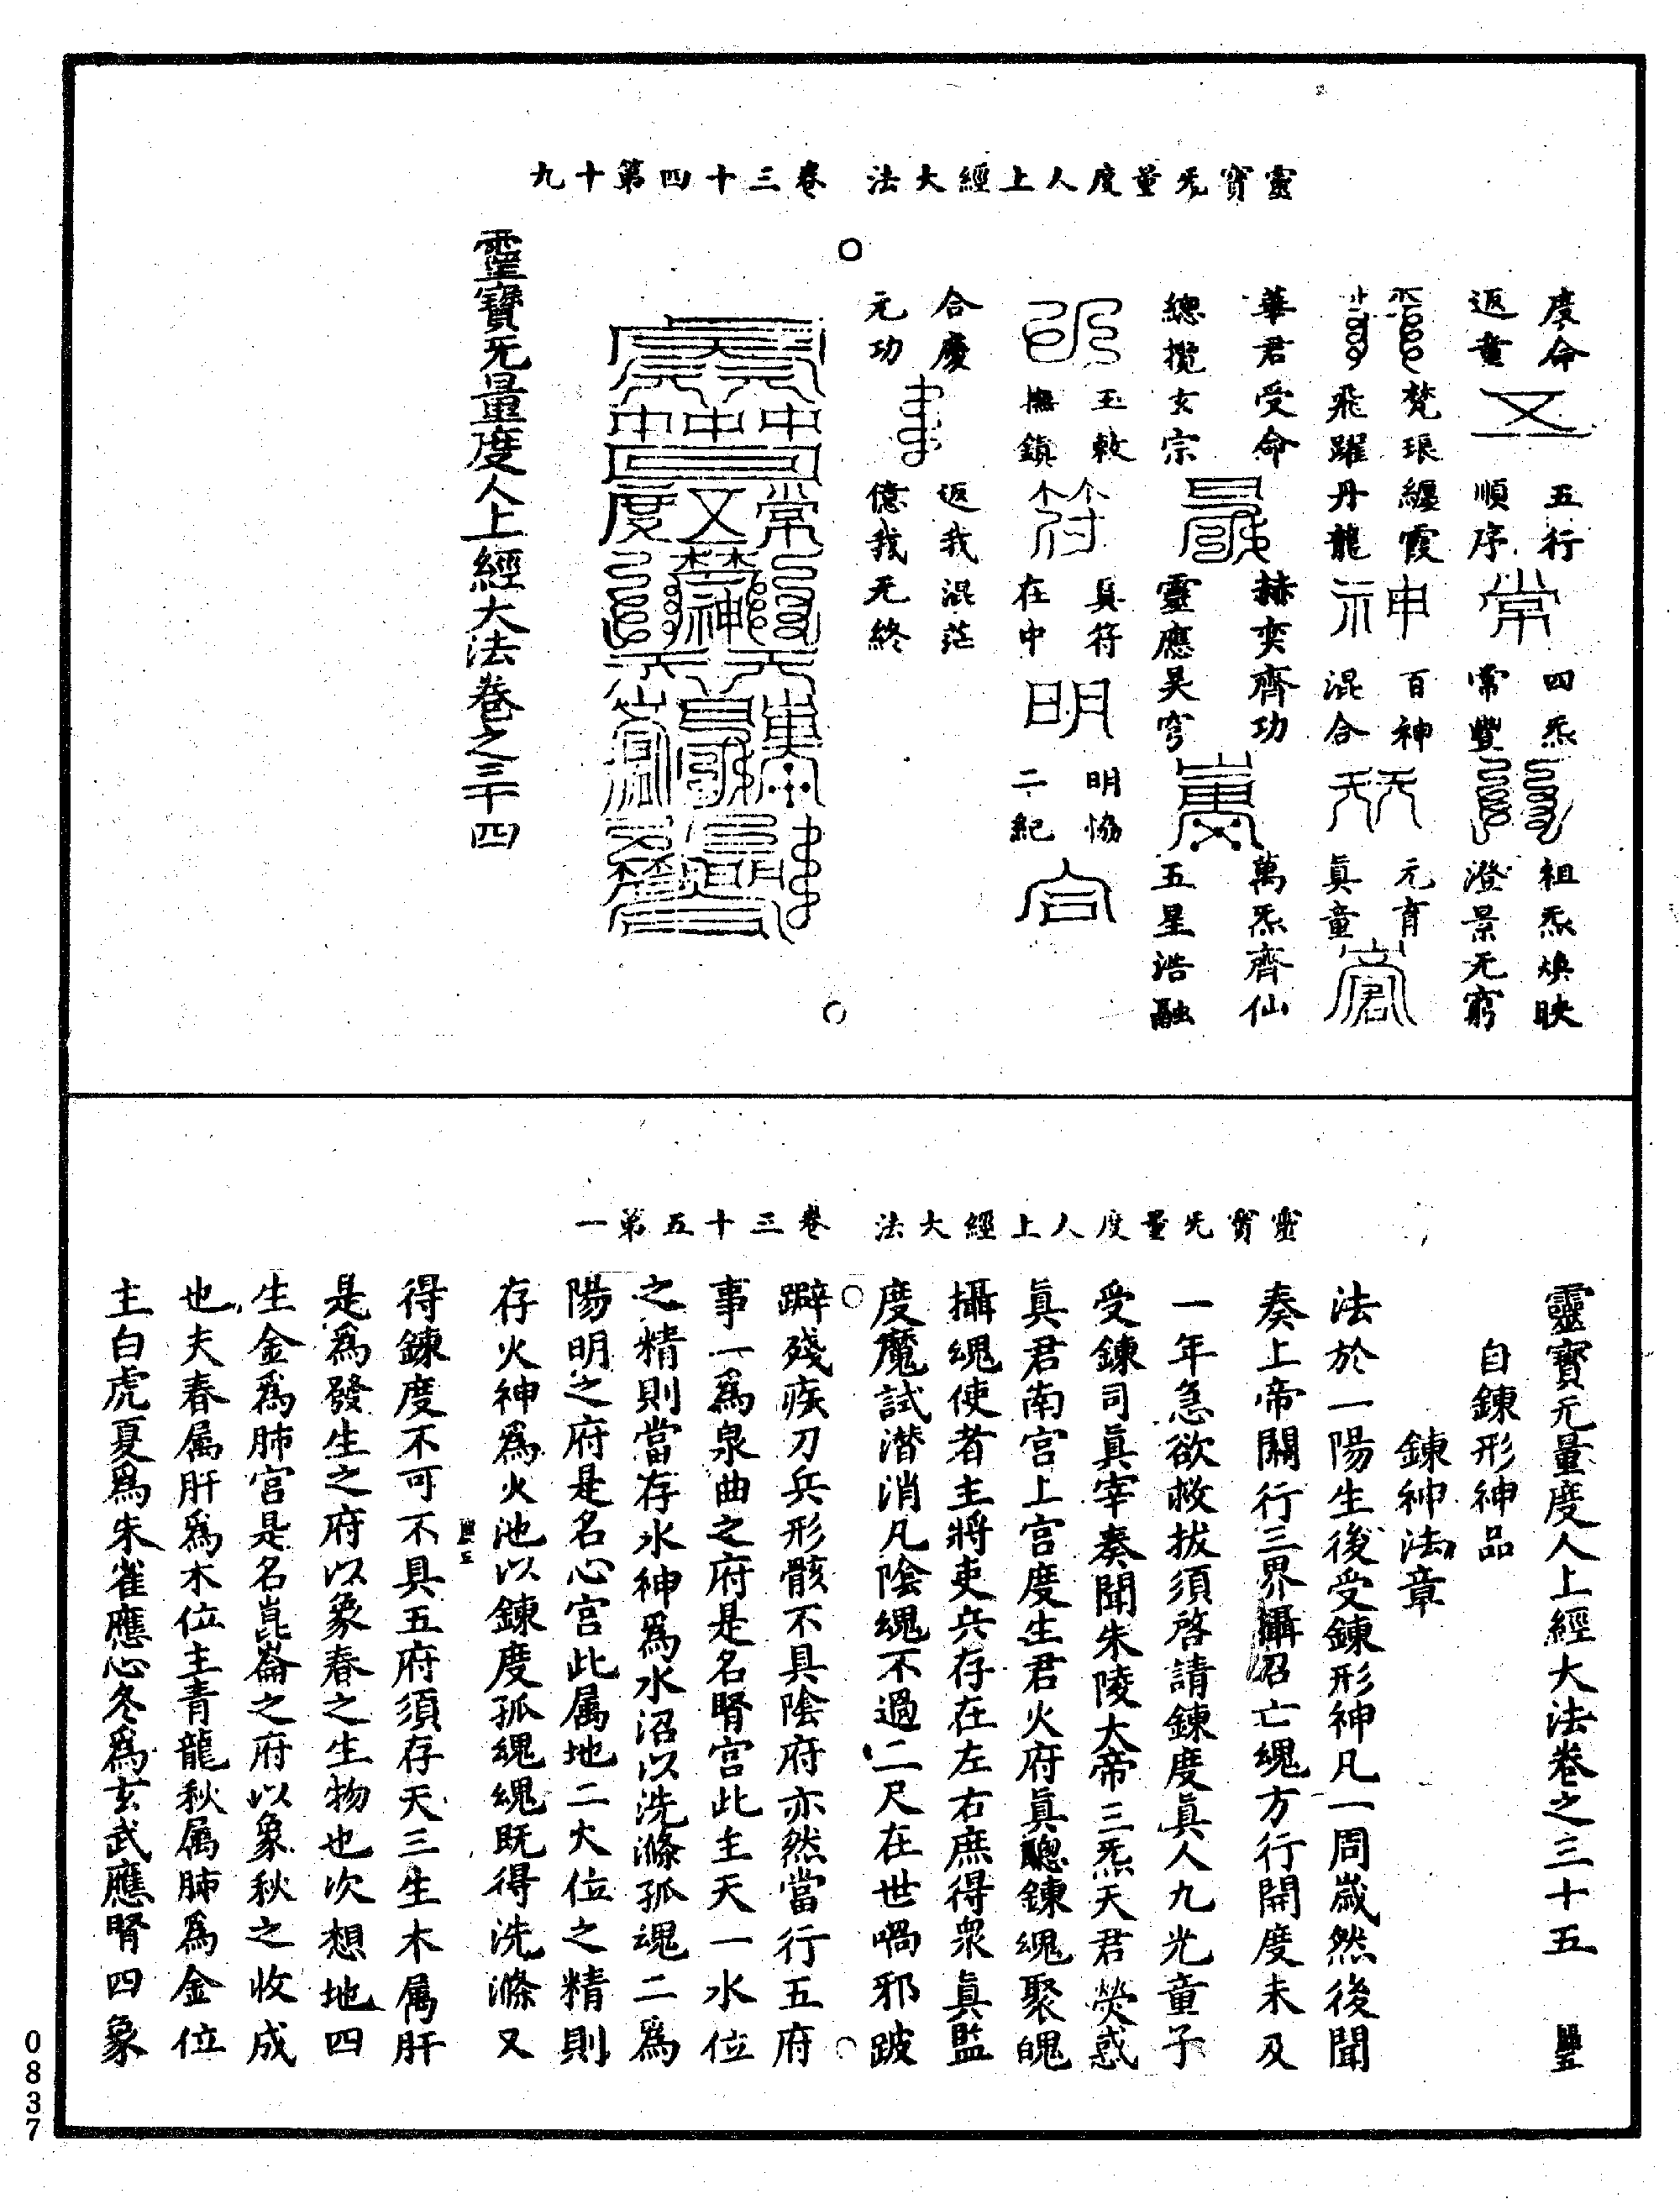 靈寶无量度人上經大法　卷三十四第十九
度命　五行　四炁　祖炁煥映
返童　順序　常豐　澄景无窮
梵琅纏霞　百神　元育
飛躍丹龍　混合　眞童
華君受命　赫奕齊功　萬炁齊仙
總攬玄宗　靈應昊穹　五星浩融
玉敕　眞符　明恊
撫鎮　在中　二紀
合慶　返我混茫
元功　億我无終
靈寶无量度人上經大法卷之三十四
靈寶无量度人上經大法　卷三十五第一
靈寶无量度人上經大法卷之三十五
自鍊形神品
鍊神法章
法於一陽生後受鍊形神凡一周歲然後聞
奏上帝關行三界攝召亡魂方行開度未及
一年急欲救拔須啓請鍊度眞人九光童子
受鍊司眞宰奏聞朱陵大帝三炁天君熒惑
眞君南宫上宫度生君火府眞聰鍊魂聚魄
攝魂使者主將吏兵存在左右庶得衆眞監
度魔試潛消凡隂魂不過二尺在世喎邪跛
躃殘疾刀兵形骸不具隂府亦然當行五府
事一爲泉曲之府是名腎宫此主天一水位
之精則當存水神爲水沼以洗滌孤魂二爲
陽明之府是名心宫此属地二火位之精則
存火神爲火池以鍊度孤魂魂既得洗滌又
得鍊度不可不具五府須存天三生木属肝
是爲發生之府以象春之生物也次想地四
生金爲肺宫是名崑崙之府以象秋之收成
也夫春属肝爲木位主青龍秋属肺爲金位
主白虎夏爲朱雀應心冬爲玄武應腎四象
0837